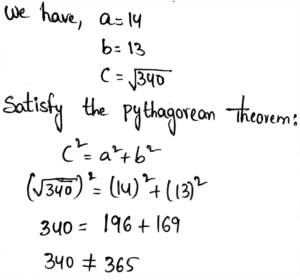 We have, a=14
b=13
C=√340
Satisfy the pythagorean theorem:
C²=a²+b²
(√340)²=(14)²+(13)²
340 = 196+169
340 ≠ 365